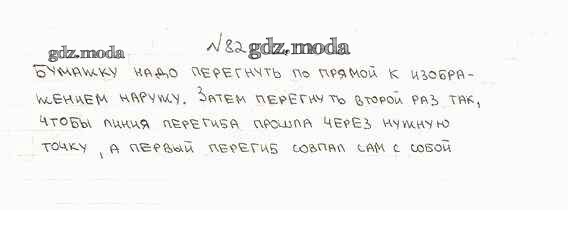 gdz.moda №82 gdz.moda
Бумажку надо перегнуть по прямой к изобра-
жением наружу. Затем перегнуть второй раз так,
чтобы линия перегиба прошла через нужную
точку, а первый перегиб совпал сам с собой